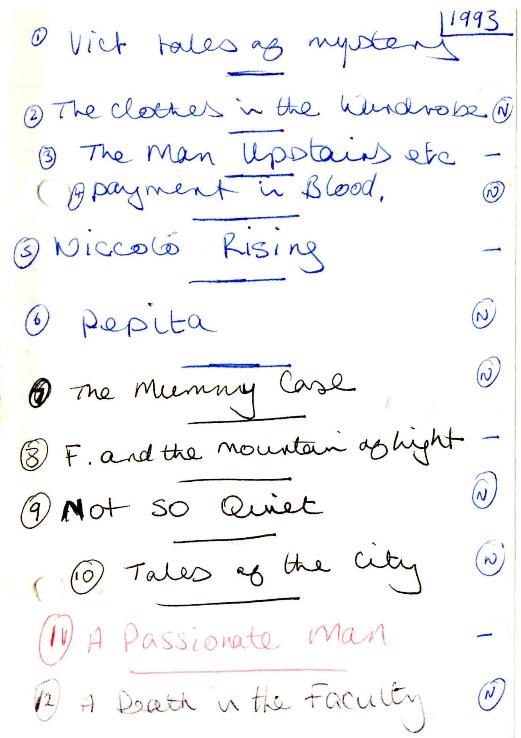 1993
① Vict tales of mystery
② The clothes in the Wardrobe Ⓝ
③ The Man Upstairs etc –
④ payment in Blood. Ⓝ
⑤ Niccolò Rising –
⑥ Pepita Ⓝ
⑦ The Mummy Case Ⓝ
⑧ F. and the mountain of light –
⑨ Not so Quiet Ⓝ
⑩ Tales of the city Ⓝ
⑪ A Passionate Man –
⑫ A Death in the Faculty Ⓝ